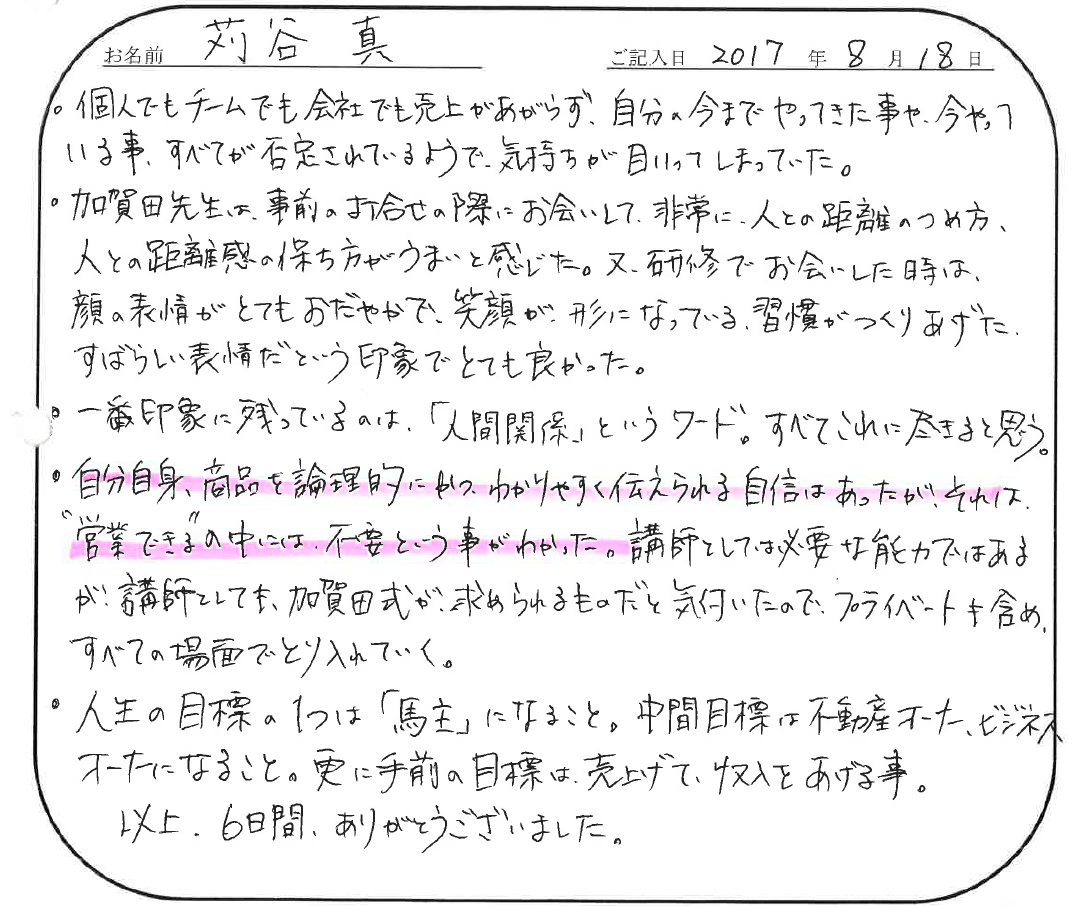 お名前 苅谷 真 ご記入日 2017 年 8 月 18 日
。個人でもチームでも会社でも売上があがらず、自分の今までやってきた事や、今やって
いる事、すべてが否定されているようで、気持ちが目いってしまっていた。
。加賀田先生は、事前のお合せの際にお会いして、非常に、人との距離のつめ方、
人との距離感の保ち方がうまいと感じた。又、研修でお会いした時は、
顔の表情がとてもおだやかで、笑顔が、形になっている、習慣がつくりあげた、
すばらしい表情だという印象でとても良かった。
。一番印象に残っているのは、「人間関係」というワード。すべてこれに尽きると思う。
。自分自身、商品を論理的にかつ、わかりやすく伝えられる自信はあったが、それは、
"営業できる"の中には、不要という事がわかった。講師としては必要な能力ではある
が、講師としても、加賀田式が、求められるものだと気付いたので、プライベートも含め、
すべての場面でとり入れていく。
。人生の目標の1つは「馬主」になること。中間目標は不動産オーナー、ビジネス
オーナーになること。更に手前の目標は、売上げて、収入をあげる事。
以上、6日間、ありがとうございました。